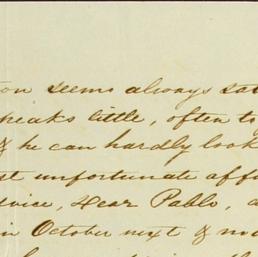 ton seems always sat
speaks little, often to
& he can hardly look
st unfortunate aff
dvice, dear Pablo, a
in October next & no